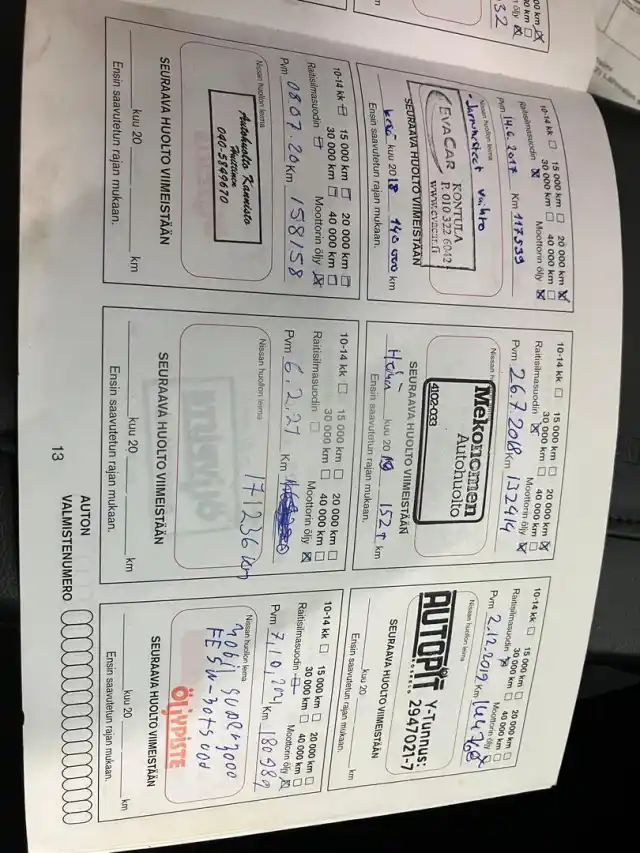 10-14 kk 15 000 km 20 000 km
30 000 km 40 000 km
Raitisilmasuodin Moottorin öljy
Pvm 14.6.2017 Km 117539
Nissan huollon leima
vaihto
EVACAR KONTULA
P. 010 322 6042
www.evacar.fi
SEURAAVA HUOLTO VIIMEISTÄÄN
kesä kuu 2018 140 000 km
Ensin saavutetun rajan mukaan.
10-14 kk 15 000 km 20 000 km
30 000 km 40 000 km
Raitisilmasuodin Moottorin öljy
Pvm 26.7.2018 Km 132414
Nissan
Mekonomen
Autohuolto
4102-033
SEURAAVA HUOLTO VIIMEISTÄÄN
kuu 2019 km
Ensin saavutetun rajan mukaan.
10-14 kk 15 000 km 20 000 km
30 000 km 40 000 km
Raitisilmasuodin Moottorin öljy
Pvm 2.12.2019 Km
Nissan huollon leima
AUTOPIT Y-Tunnus:
2947021-7
SEURAAVA HUOLTO VIIMEISTÄÄN
kuu 20 km
Ensin saavutetun rajan mukaan.
10-14 kk 15 000 km 20 000 km
30 000 km 40 000 km
Raitisilmasuodin Moottorin öljy
Pvm 0807.20 Km 158158
Nissan huollon leima
Autohuolto Kannisto
Huittinen
040-5849670
SEURAAVA HUOLTO VIIMEISTÄÄN
kuu 20 km
Ensin saavutetun rajan mukaan.
10-14 kk 15 000 km 20 000 km
30 000 km 40 000 km
Raitisilmasuodin Moottorin öljy
Pvm 6.2.21 Km
171236 km
Nissan huollon leima
SEURAAVA HUOLTO VIIMEISTÄÄN
kuu 20 km
Ensin saavutetun rajan mukaan.
10-14 kk 15 000 km 20 000 km
30 000 km 40 000 km
Raitisilmasuodin Moottorin öljy
Pvm 7.10.2021 Km 180989
Nissan huollon leima
mobil super 3000
FE 5W-30
ÖLJYPISTE
SEURAAVA HUOLTO VIIMEISTÄÄN
kuu 20 km
Ensin saavutetun rajan mukaan.
13
AUTON
VALMISTENUMERO